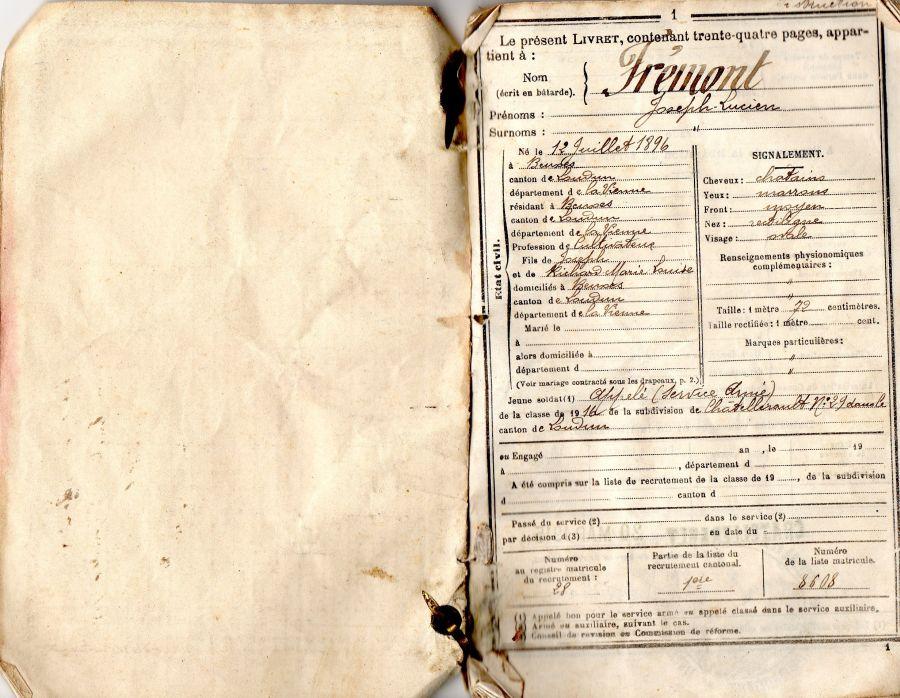 1
Le présent LIVRET, contenant trente-quatre pages, appar-
tient à :
Nom
(écrit en bâtarde).
Frémont
Prénoms : Joseph-Lucien
Surnoms : "
Etat civil.
Né le 12 Juillet 1896
à Beuxes
canton de Loudun
département de la Vienne
résidant à Beuxes
canton de Loudun
département de la Vienne
Profession de Cultivateur
Fils de Joseph
et de Richard Marie Louise
domiciliés à Beuxes
canton de Loudun
département de la Vienne
Marié le
à
alors domiciliée à
département d
(Voir mariage contracté sous les drapeaux, p. 2.)
SIGNALEMENT.
Cheveux : chatains
Yeux : marrons
Front : moyen
Nez : rectiligne
Visage : ovale
Renseignements physionomiques
complémentaires :
"
"
Taille : 1 mètre 72 centimètres.
Taille rectifiée : 1 mètre cent.
Marques particulières :
"
"
Jeune soldat(1) Appelé (Service Armé)
de la classe de 1916 de la subdivision de Châtellerault N° 29 dans le
canton de Loudun
ou Engagé an , le 19
à , département d
A été compris sur la liste de recrutement de la classe de 19 , de la subdivision
d canton d
Passé du service (2) dans le service (2)
par décision d (3) en date du
Numéro
au registre matricule
du recrutement :
28
Partie de la liste du
recrutement cantonal.
1ère
Numéro
de la liste matricule.
8608
(1) Appelé bon pour le service armé ou appelé classé dans le service auxiliaire.
(2) Armé ou auxiliaire, suivant le cas.
(3) Conseil de revision ou Commission de réforme.
1